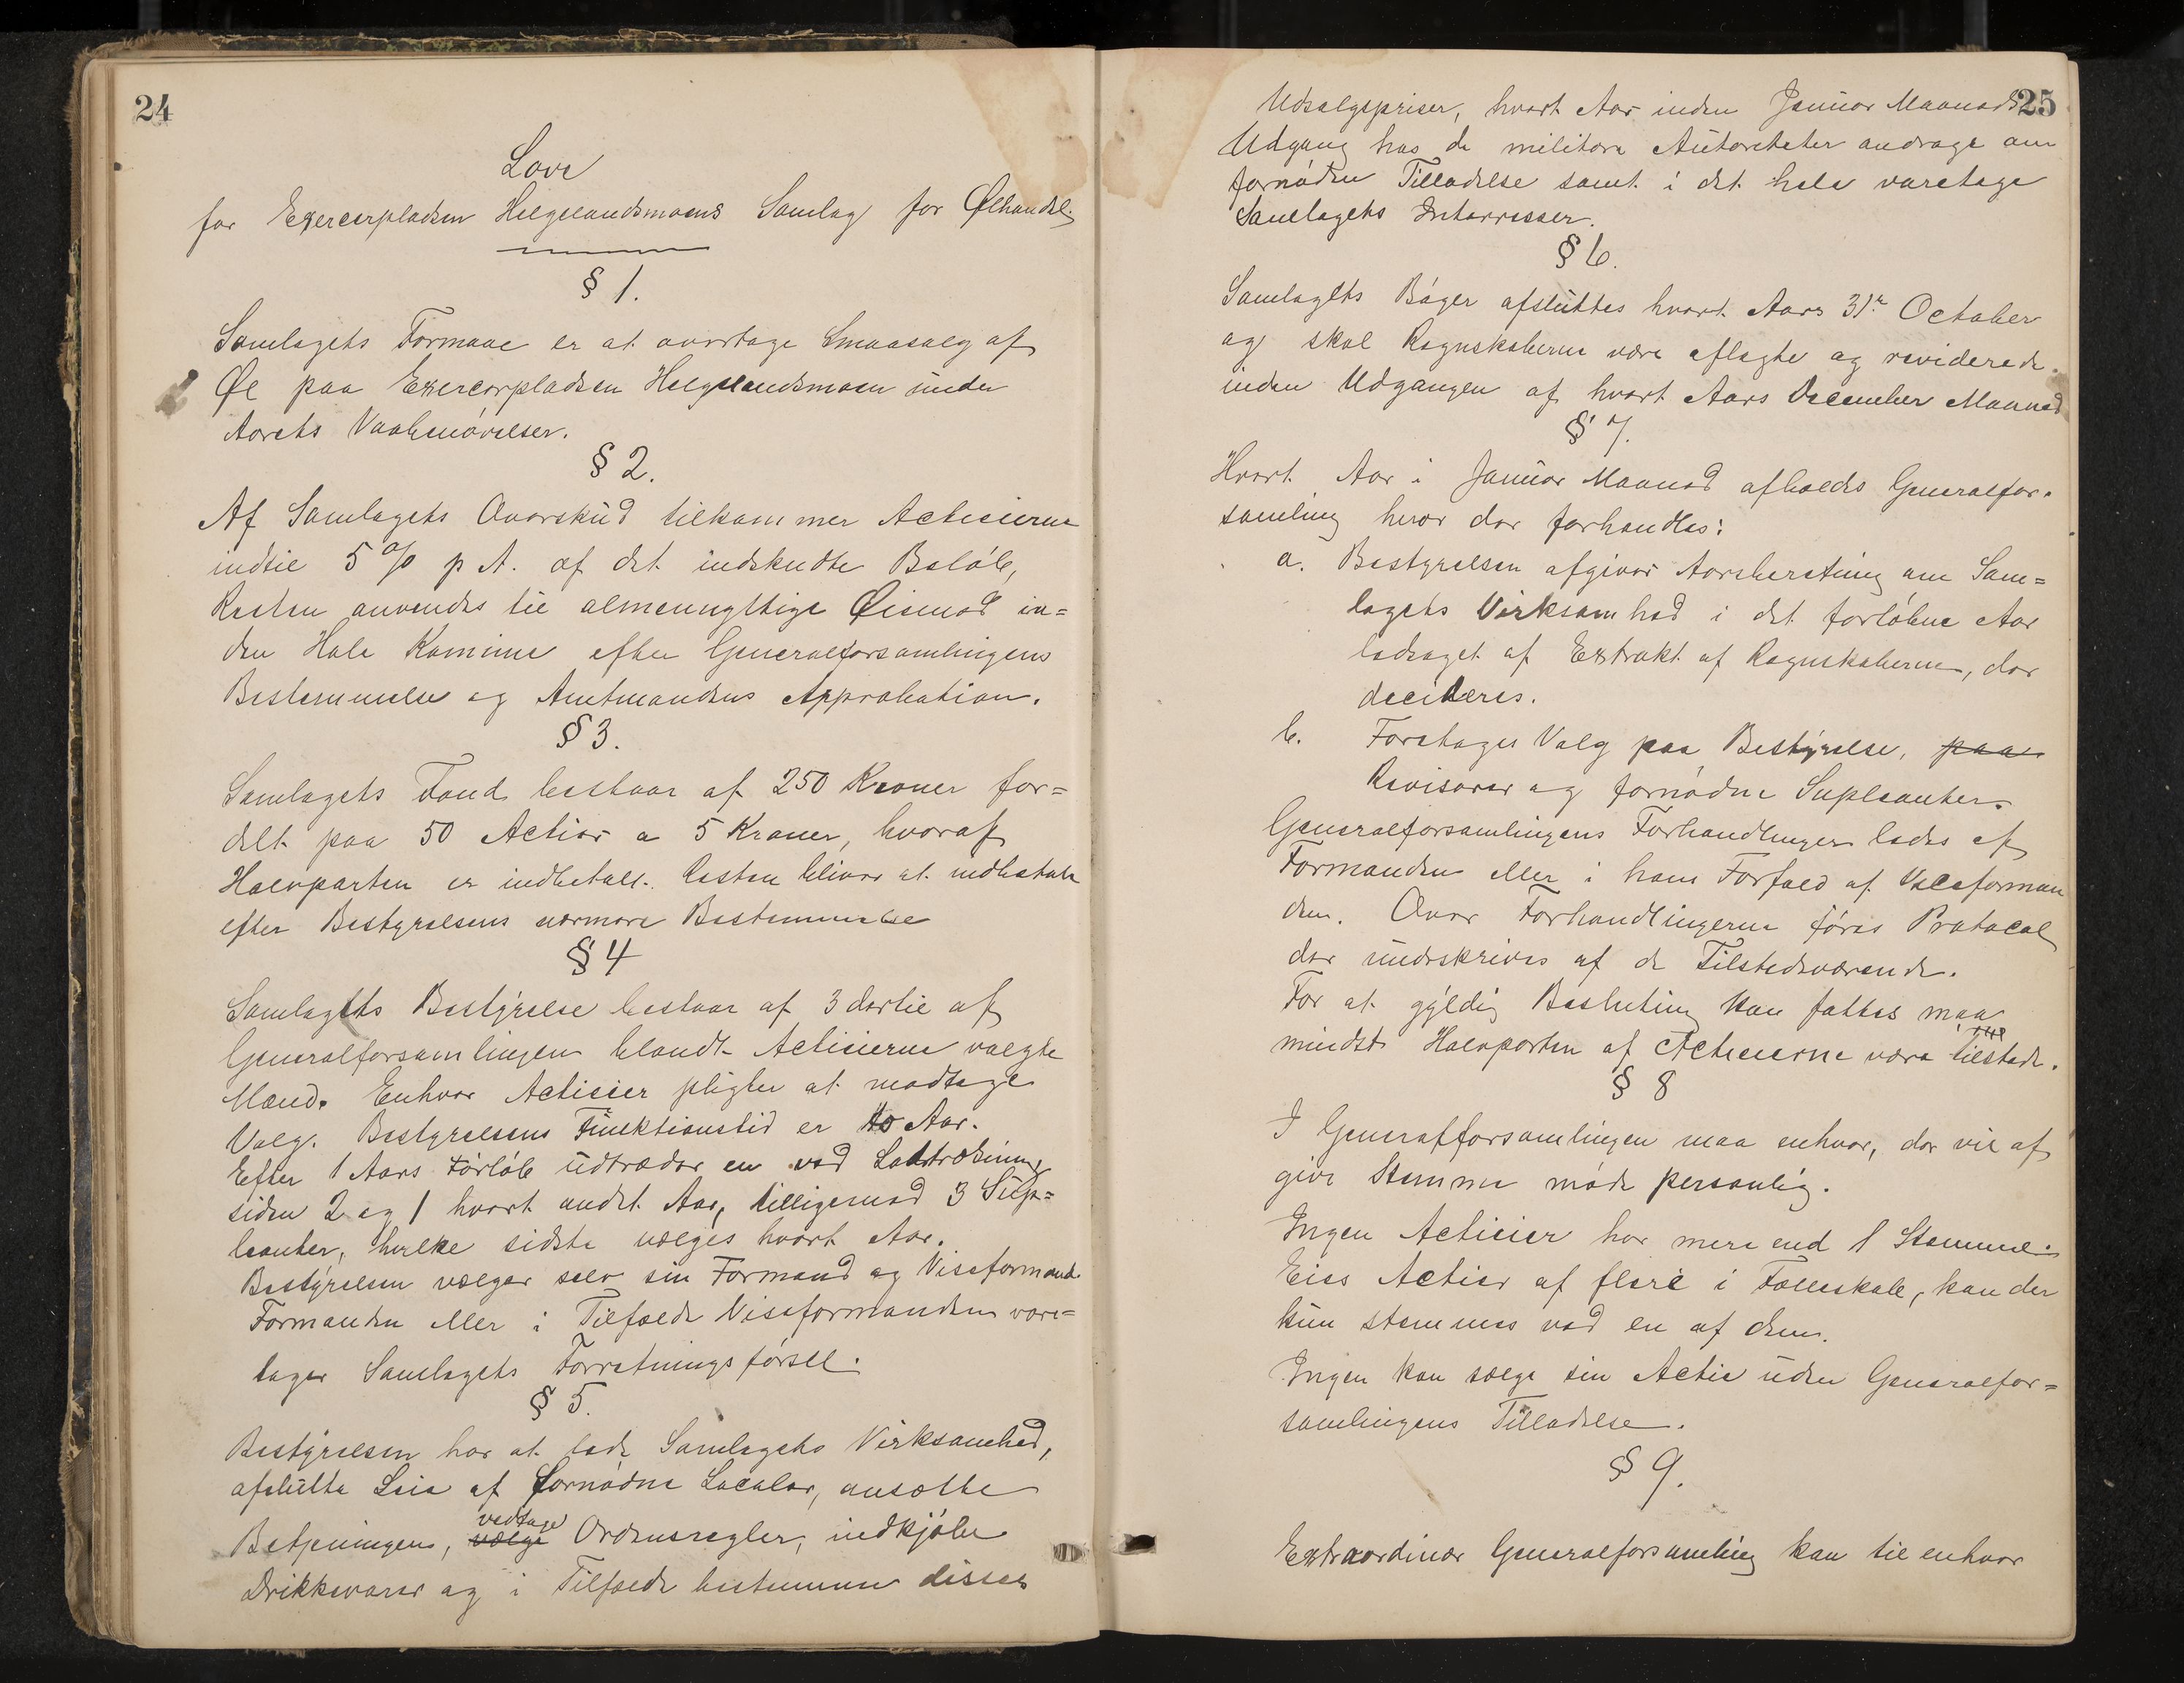 24
Love
for Exercerpladsen Helgelandsmoens Samlag for Ølhandel.
§ 1.
Samlagets Formaal er at overtage Smaasalg af
Øl paa Exercerpladsen Helgelandsmoen under
Aarets Vaabenøvelser.
§ 2.
Af Samlagets Overskud tilkommer Actieierne
indtil 5 % p A. af det indskudte Beløb,
Resten anvendes til almennyttige Øiemed in=
den Hole Komune efter Generalforsamlingens
Bestemmelse og Amtmandens Approbation.
§ 3.
Samlagets Fond bestaar af 250 Kroner for=
delt paa 50 Actier a 5 Kroner, hvoraf
Halvparten er indbetalt. Resten bliver at indbetale
efter Bestyrelsens nærmere Bestemmelse
§ 4
Samlagets Bestyrelse bestaar af 3 dertil af
Generalforsamlingen blandt Actieierne valgte
Mænd. Enhver Actieier pligter at modtage
Valg. Bestyrelsens Funktionstid er to Aar.
Efter 1 Aars Forløb udtræder en ved Lodtrækning
siden 2 og 1 hvert andet Aar, tilligemed 3 Sup=
leanter, hvilke sidste vælges hvert Aar.
Bestyrelsen vælger selv sin Formand og Viseformand.
Formanden eller i Tilfælde Viseformanden vare=
tager Samlagets Forretningsførsel.
§ 5.
Bestyrelsen har at lede Samlagets Virksomhed,
afslutte Leie af fornødne Localer, ansætte
vedtage
Betjeningen, vælge Ordensregler, indkjøbe
Drikkevarer og i Tilfælde bestemme disses
25
Udsalgspriser, hvert Aar inden Januar Maaneds
Udgang hos de militære Autoriteter andrage om
fornøden Tilladelse samt i det hele varetage
Samlagets Interresser.
§ 6.
Samlagets Bøger afsluttes hvert Aars 31te October
og skal Regnskaberne være aflagte og reviderede
inden Udgangen af hvert Aars December Maaned
§ 7.
Hvert Aar i Januar Maaned afholdes Generalfor=
samling hvor der forhandles:
a. Bestyrelsen afgiver Aarsberetning om Sam=
lagets Virksomhed i det forløbne Aar
ledsaget af Extrakt af Regnskaberne, der
decideres.
b. Foretages Valg paa Bestyrelse, paa
Revisorer og fornødne Supleanter.
Generalforsamlingens Forhandlinger ledes af
Formanden eller i hans Forfald af Viseforman
den. Over Forhandlingerne føres Protocol
der underskrives af de Tilstedeværende.
For at gyldig Beslutning kan fattes maa
mindst Halvparten af Actieierne være tilstede.
§ 8
I Generalforsamlingen maa enhver, der vil af
give Stemme møde personlig.
Ingen Actieier har mere end 1 Stemme.
Eies Actier af flere i Fælleskab, kan der
kun stemmes ved en af dem.
Ingen kan sælge sin Actie uden Generalfor=
samlingens Tilladelse.
§ 9.
Extraordinær Generalforsamling kan til enhver